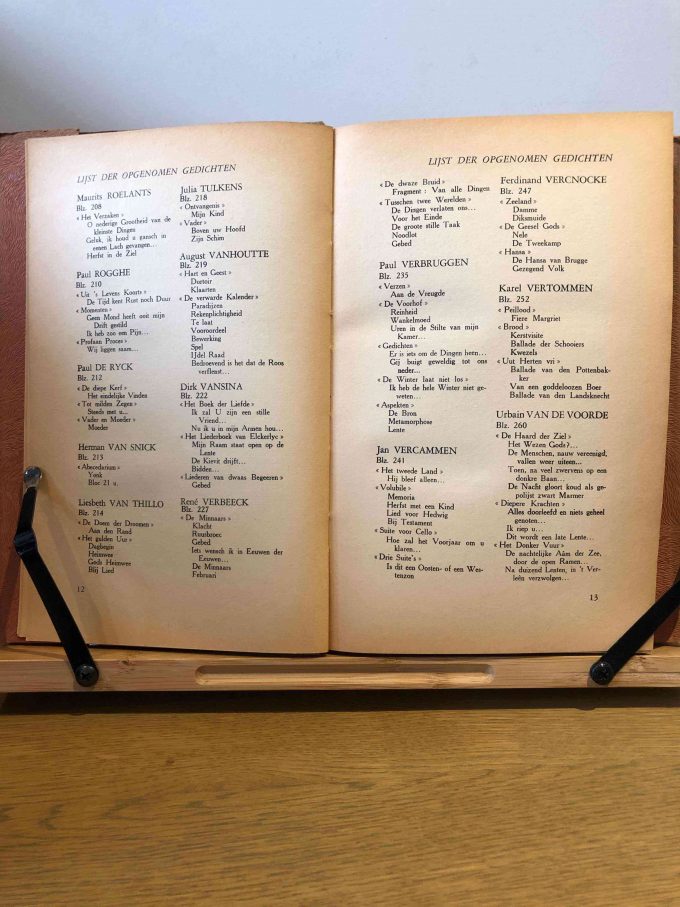 LIJST DER OPGENOMEN GEDICHTEN
Maurits ROELANTS
Blz. 208
« Het Verzaken »
O nederige Grootheid van de
kleinste Dingen
Geluk, ik houd u gansch in
eenen Lach gevangen...
Herfst in de Ziel
Paul ROGGHE
Blz. 210
« Uit 's Levens Koorts »
De Tijd kent Rust noch Duur
« Momenten »
Geen Mond heeft ooit mijn
Drift gestild
Ik heb zoo em Pijn...
« Profaan Proces »
Wij liggen saam...
Paul DE RYCK
Blz. 212
« De diepe Kerf »
Het eindelijke Vinden
« Tot milden Zegen »
Steeds met u...
« Vader en Moeder »
Moeder
Herman VAN SNICK
Blz. 213
« Abecedarium »
Yonk
Bloc 21 u.
Liesbeth VAN THILLO
Blz. 214
« De Doem der Droomen »
Aan den Rand
« Het gulden Uur »
Dagbegin
Heimwee
Gods Heimwee
Blij Lied
Julia TULKENS
Blz. 218
« Ontvangenis »
Mijn Kind
« Vader »
Boven uw Hoofd
Zijn Schim
August VANHOUTTE
Blz. 219
« Hart en Geest »
Duetoir
Klaarten
« De verwarde Kalender »
Paradijzen
Rekenplichtigheid
Te laat
Vooroordeel
Bewerking
Spel
IJdel Raad
Bedroevend is het dat de Roos
verflenst...
Dirk VANSINA
Blz. 222
« Het Boek der Liefde »
Ik zal U zijn een stille
Vriend...
Nu ik u in mijn Armen hou...
« Het Liederboek van Elckerlyc »
Mijn Raam staat open op de
Lente
De Kievit drijft...
Bidden...
« Liederen van dwaas Begeeren »
Gebed
René VERBEECK
Blz. 227
« De Minnaars »
Klacht
Ruusbroec
Gebed
Iets wensch ik in Eeuwen der
Eeuwen...
De Minnaars
Februari
12
LIJST DER OPGENOMEN GEDICHTEN
« De dwaze Bruid »
Fragment : Van alle Dingen
« Tusschen twee Werelden »
De Dingen verlaten ons...
Voor het Einde
De groote stille Taak
Noodlot
Gebed
Paul VERBRUGGEN
Blz. 235
« Verzen »
Aan de Vreugde
« De Voorhof »
Reinheid
Wankelmoed
Uren in de Stilte van mijn
Kamer...
« Gedichten »
Er is iets om de Dingen heen...
Gij buigt geweldig tot ons
neder...
« De Winter laat niet los »
Ik heb de hele Winter niet ge-
weten...
« Aspekten »
De Bron
Metamorphose
Lente
Jan VERCAMMEN
Blz. 241
« Het tweede Land »
Hij bleef alleen...
« Volubile »
Memoria
Herfst met een Kind
Lied voor Hedwig
Bij Testament
« Suite voor Cello »
Hoe zal het Voorjaar om u
klaren...
« Drie Suite's »
Is dit een Oosten- of een Wes-
tenzon
Ferdinand VERCNOCKE
Blz. 247
« Zeeland »
Damme
Diksmuide
« De Geesel Gods »
Nele
De Tweekamp
« Hansa »
De Hansa van Brugge
Gezegend Volk
Karel VERTOMMEN
Blz. 252
« Peillood »
Fiere Margriet
« Brood »
Kerstvisite
Ballade der Schooiers
Kwezels
« Uut Herten vri »
Ballade van den Pottenbak-
ker
Van een goddeloozen Boer
Ballade van den Landsknecht
Urbain VAN DE VOORDE
Blz. 260
« De Haard der Ziel »
Het Wezen Gods?...
De Menschen, nauw vereenigd,
vallen weer uiteen...
Toen, na veel zwervens op een
donkre Baan...
De Nacht gloort koud als ge-
polijst zwart Marmer
« Diepere Krachten »
Alles doorleefd en niets geheel
genoten...
Ik riep u...
Dit wordt een late Lente...
« Het Donker Vuur »
De nachtelijke Aâm der Zee,
door de open Ramen...
Na duizend Lenten, in 't Ver-
leên verzwolgen...
13